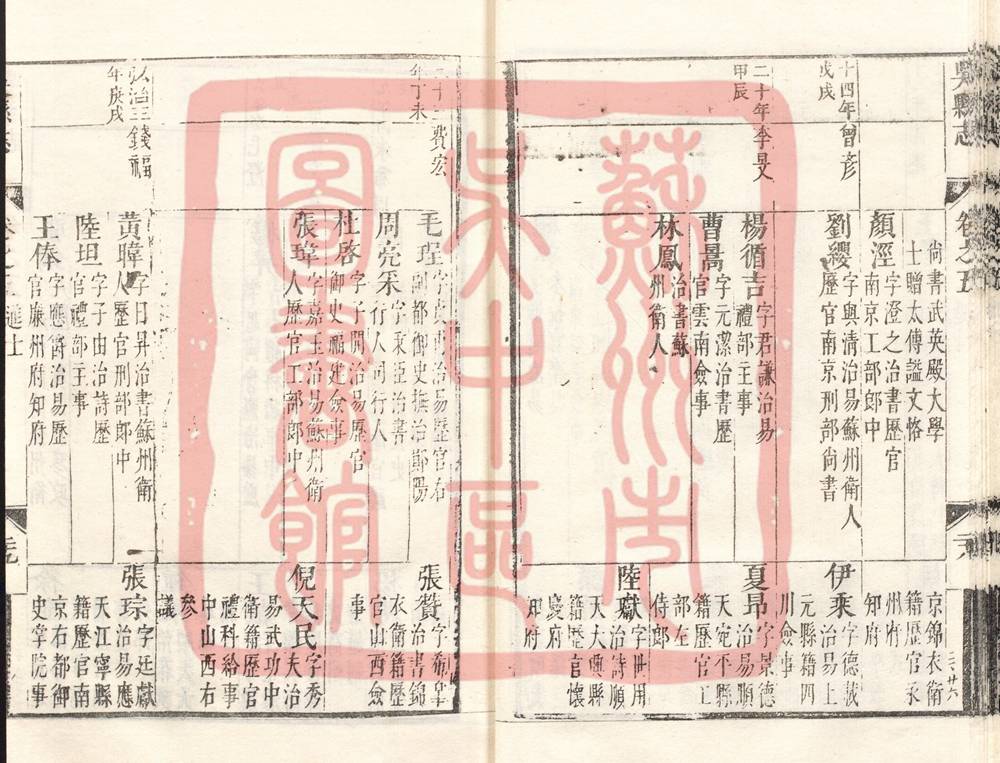 吳縣志
卷之五
十四年曾彦
戊戌
尚書武英殿大學
士贈太傅謚文恪
顏涇字澄之治書歷官
南京工部郎中
劉纓字與清治易蘇州衛人
歷官南京刑部尚書
二十年李旻
甲辰
楊循吉字君謙治易
禮部主事
曹鳳字元潔治書歷
官雲南僉事
林鳳治書蘇
州衛人
京錦衣衛
籍歷官永
州府
知府
伊乘字德載
治易上
元縣籍四
川僉事
夏昂字景德
治易順
天宛平縣
籍歷官工
部左
侍郎
陸獻字世用
治詩順
天大興縣
籍歷官懷
慶府
知府
費宏
年丁未
毛珵字貞甫治易歷官右
副都御史撫治鄖陽
周亮采字秉臣治書
行人司行人
杜啓字子開治易歷官
御史福建僉事
張瑋字嘉玉治易蘇州衛
人歷官工部郎中
弘治三錢福
年庚戌
黃暐字日昇治書蘇州衛
人歷官刑部郎中
陸坦字子由治詩歷
官禮部主事
王俸字應爵治易歷
官廉州府知府
張贊字希
治書錦
衣衛籍歷
官山西僉
事
倪天民字秀
夫治
易武功中
衛籍歷官
禮科給事
中山西右
參
議
張琮字廷獻
治易應
天江寧縣
籍歷官南
京右都御
史掌院事
進士
蘇州市
吳中區
圖書館